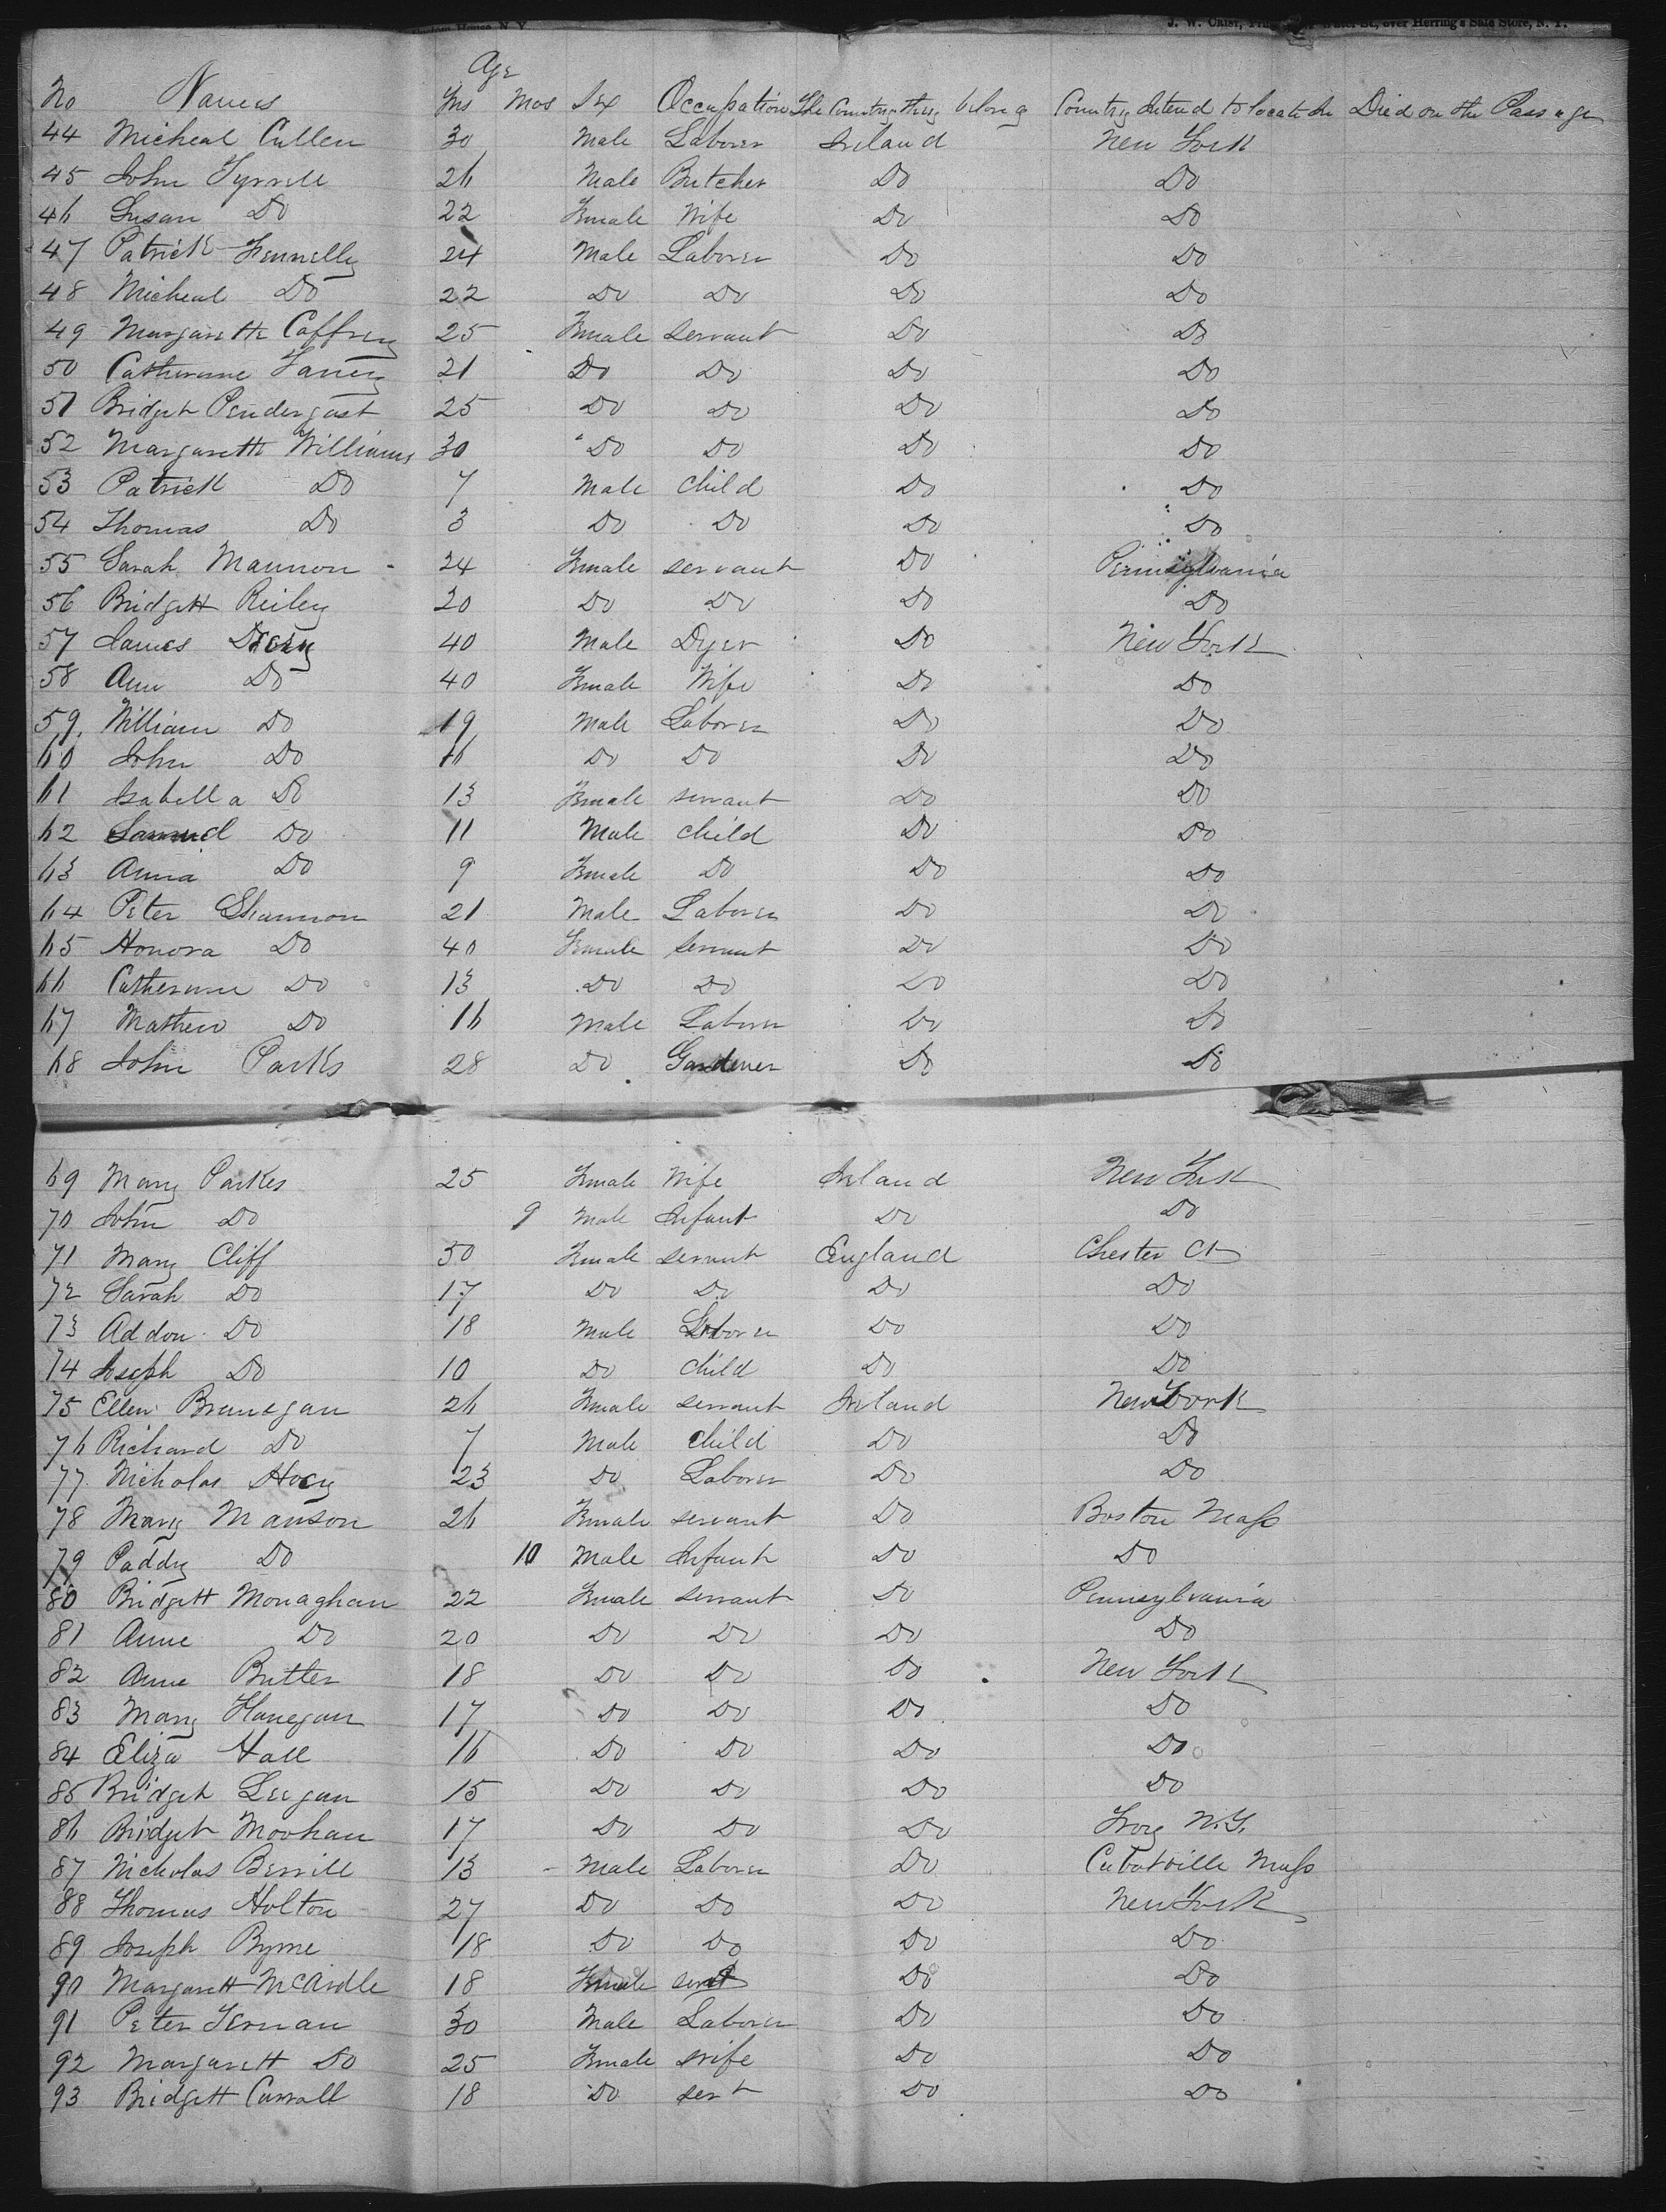 J. W. Orist, over Herring's Safe Store, N. Y.
Age
No Names Yrs Mos Sex Occupation The Country they belong Country Intend to locate in Died on the Passage
44 Micheal Cullen 30 Male Laborer Ireland New York
45 John Tyrrell 26 Male Butcher Do Do
46 Susan Do 22 Female Wife Do Do
47 Patrick Fennelly 24 Male Laborer Do Do
48 Micheal Do 22 Do Do Do Do
49 Margarette Caffrey 25 Female Servant Do Do
50 Catherine 21 Do Do Do Do
51 Bridget Pendergast 25 Do Do Do Do
52 Margarette Williams 30 Do Do Do Do
53 Patrick Do 7 Male Child Do Do
54 Thomas Do 3 Do Do Do Do
55 Sarah Mannon 24 Female servant Do Pennsylvania
56 Bridgett Reiley 20 Do Do Do Do
57 James 40 Male Dyer Do New York
58 Ann Do 40 Female Wife Do Do
59 William Do 19 Male Laborer Do Do
60 John Do 16 Do Do Do Do
61 Isabella Do 13 Female servant Do Do
62 Samuel Do 11 Male child Do Do
63 Anna Do 9 Female Do Do Do
64 Peter Shannon 21 Male Laborer Do Do
65 Honora Do 40 Female Servant Do Do
66 Catherine Do 13 Do Do Do Do
67 Mathew Do 16 Male Laborer Do Do
68 John Parks 28 Do Gardener Do Do
69 Mary Parkes 25 Female Wife Ireland New York
70 John Do 9 Male Infant Do Do
71 Mary Cliff 50 Female servant England Chester Ct
72 Sarah Do 17 Do Do Do Do
73 Addon Do 18 Male Laborer Do Do
74 Joseph Do 10 Do child Do Do
75 Ellen Brunegan 26 Female servant Ireland New York
76 Richard Do 7 Male Child Do Do
77 Nicholas Hoey 23 Do Laborer Do Do
78 Mary Manson 26 Female servant Do Boston Mass
79 Paddy Do 10 Male Infant Do Do
80 Bridgett Monaghan 22 Female servant Do Pennsylvania
81 Anne Do 20 Do Do Do Do
82 Anne Butler 18 Do Do Do New York
83 Mary Hanegan 17 Do Do Do Do
84 Eliza Hall 16 Do Do Do Do
85 Bridget Leegan 15 Do Do Do Do
86 Bridget Moohan 17 Do Do Do Troy N.Y.
87 Nicholas Berrill 13 Male Laborer Do Cabotville Mass
88 Thomas Holton 27 Do Do Do New York
89 Joseph Byrne 18 Do Do Do Do
90 Margarett McArdle 18 Female servt Do Do
91 Peter Ternan 30 Male Laborer Do Do
92 Margarett Do 25 Female wife Do Do
93 Bridgett Carroll 18 Do servt Do Do